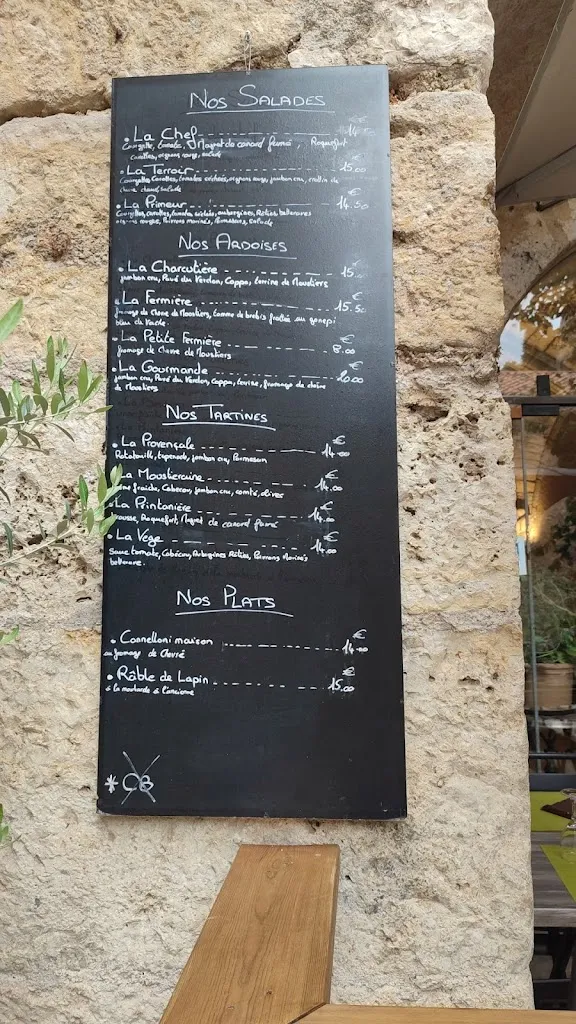 Nos Salades
€
• La Chef 14.50
Courgette, tomate, Magret de canard fumé, Roquefort
carottes, oignons rouge, salade
€
• La Terroir 15.00
Courgettes, Carottes, tomates séchées, oignons rouge, jambon cru, crottin de
chèvre chaud, salade
€
• La Primeur 14.50
Courgettes, carottes, tomates séchées, aubergines, Rôties balsamique
oignons rouges, Poivrons marinés, Parmesan, salade
Nos Ardoises
€
• La Charcutière 15.
jambon cru, Pavé du Verdon, Coppa, terrine de Moustiers
€
• La Fermière 15.50
fromage de Chèvre de Moustiers, tomme de brebis au genepi
bleu de Vache.
€
• La Petite Fermière 8.00
fromage de Chèvre de Moustiers
€
• La Gourmande 20.00
jambon cru, Pavé du Verdon, Coppa, terrine, fromage de chèvre
de Moustiers
Nos Tartines
€
• La Provençale 14.00
Ratatouille, tapenade, jambon cru, Parmesan
€
La Moustieraine 14.00
fraiche, Cabecou, jambon cru, comté, olives
€
La Printanière 14.00
Mousse, Roquefort, Magret de canard fumé
€
• La Vege 14.00
Sauce tomate, Cabécou, Aubergines Rôties, Poivrons Marinés
balsamique.
Nos Plats
€
• Cannelloni maison 14.00
au fromage de Chèvre
€
• Râble de Lapin 15.00
à la moutarde à l'ancienne
* CB